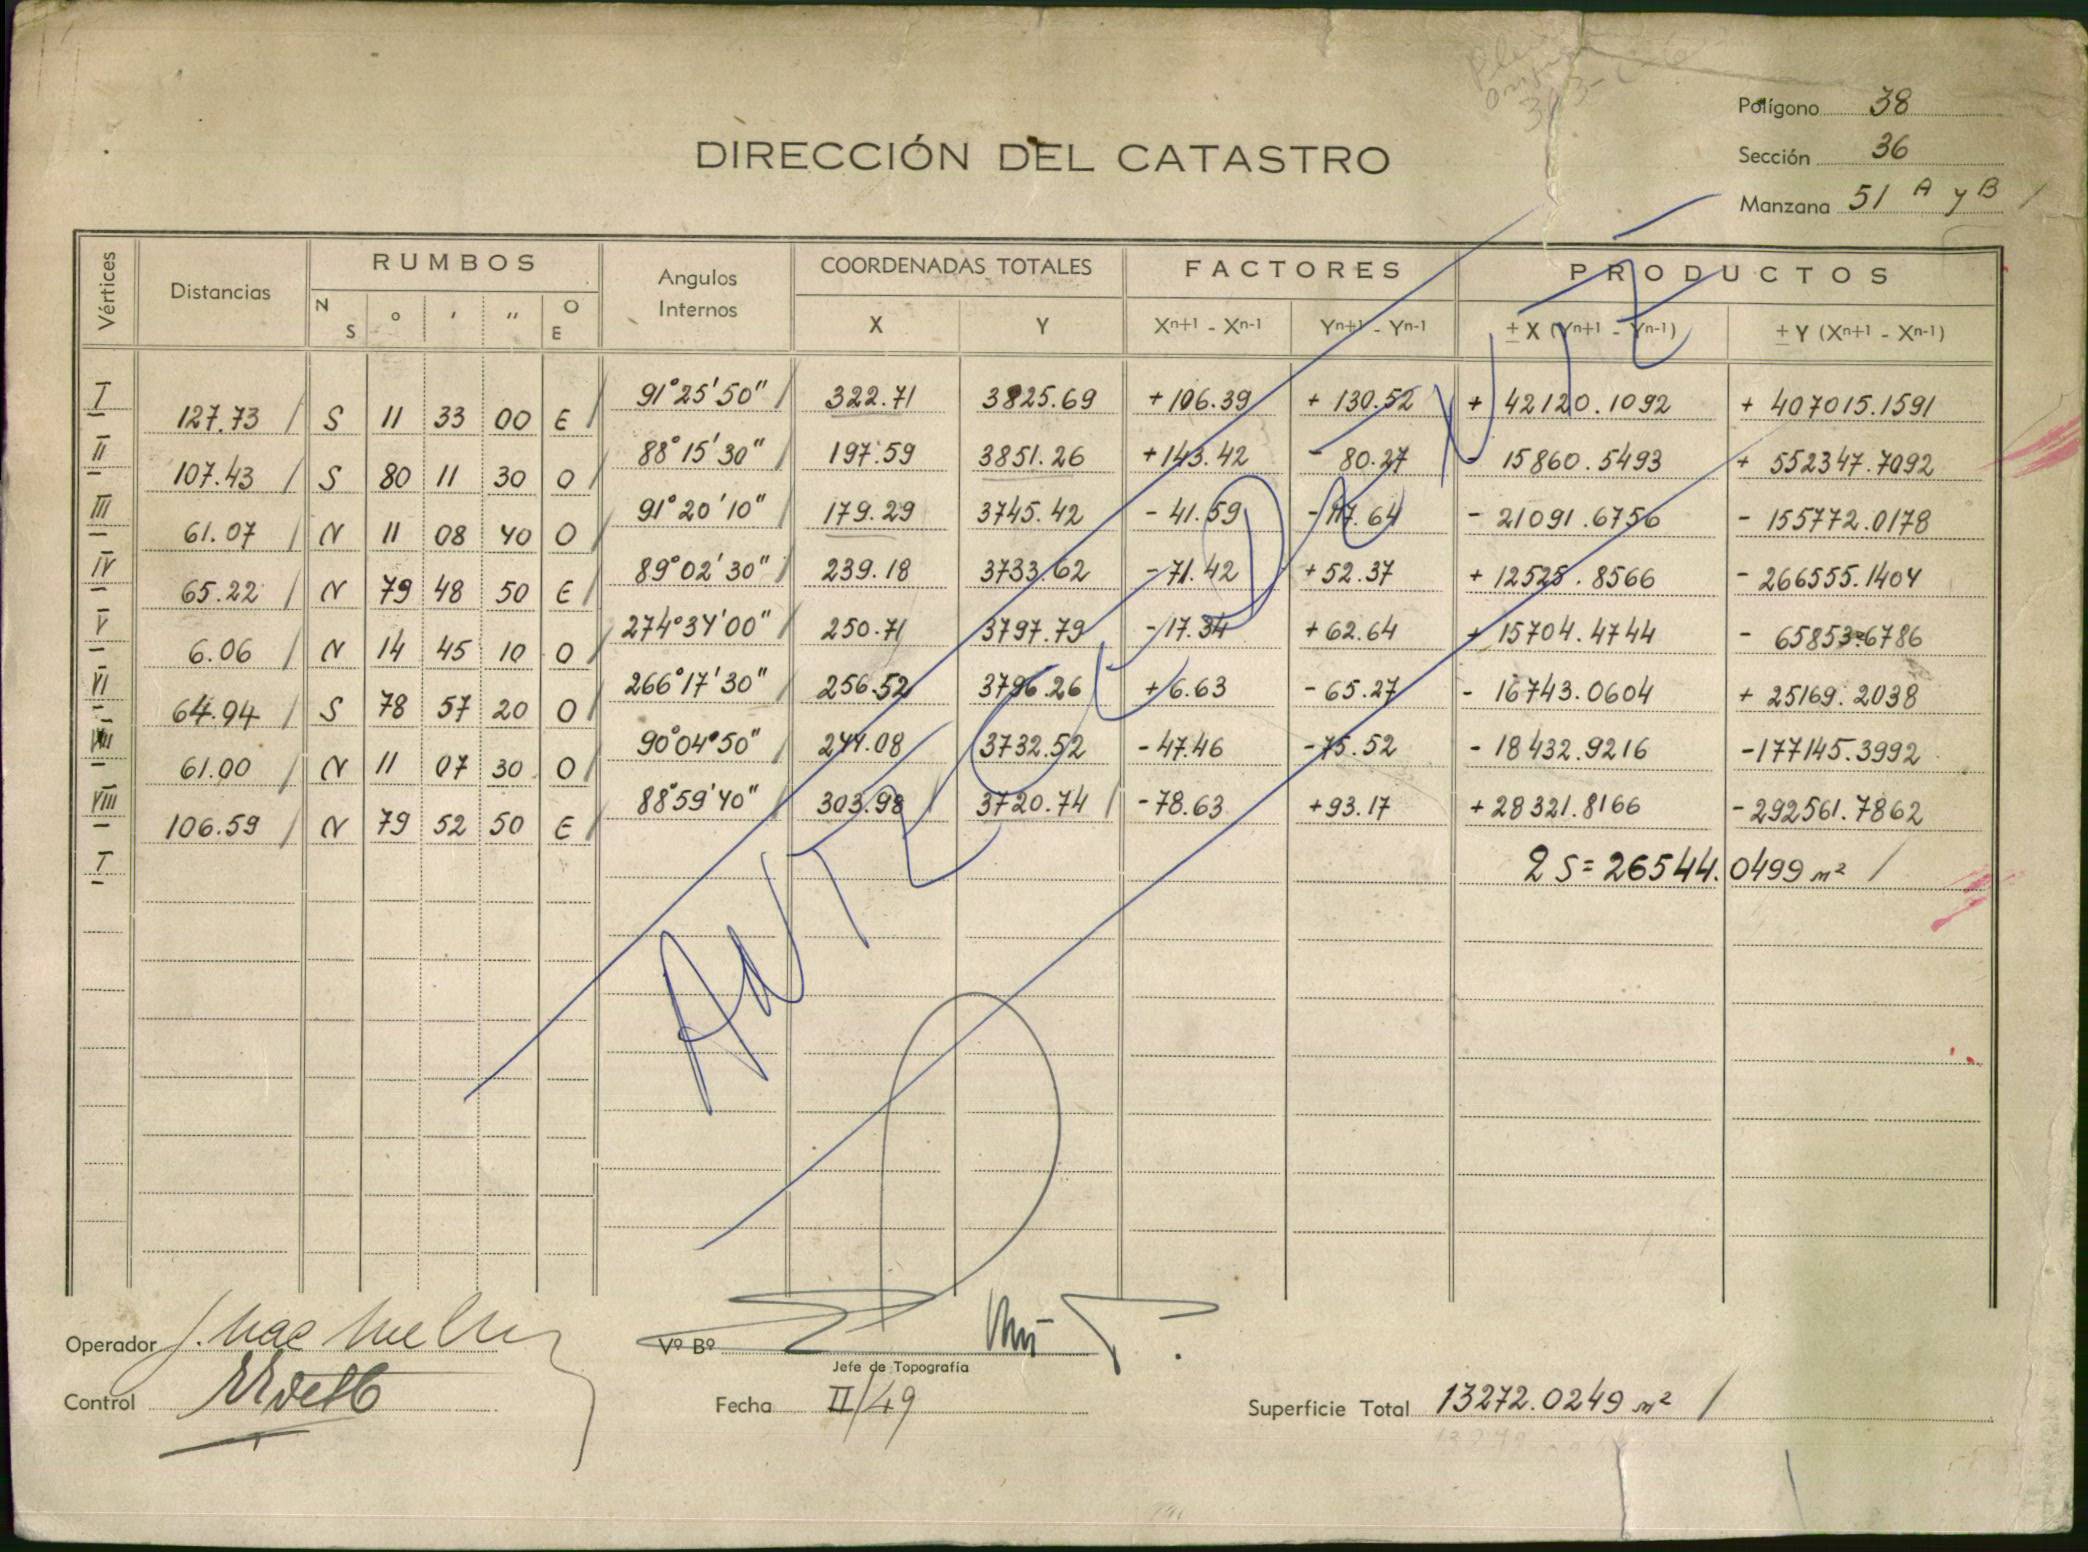 Polígono 38
DIRECCIÓN DEL CATASTRO
Sección 36
Manzana 51 A y B /
Vértices Distancias RUMBOS N S ° ' " O E Angulos Internos COORDENADAS TOTALES X Y FACTORES Xn+1 - Xn-1 Yn+1 - Yn-1 PRODUCTOS ± X (Yn+1 - Yn-1) ± Y (Xn+1 - Xn-1)
I 91°25'50" / 322.71 3825.69 + 106.39 + 130.52 + 42120.1092 + 407015.1591
127.73 / S 11 33 00 E /
II 88°15'30" / 197.59 3851.26 + 143.42 - 80.27 - 15860.5493 + 552347.7092
107.43 / S 80 11 30 O /
III 91°20'10" / 179.29 3745.42 - 41.59 - 117.64 - 21091.6756 - 155772.0178
61.07 / N 11 08 40 O /
IV 89°02'30" / 239.18 3733.62 - 71.42 + 52.37 + 12525.8566 - 266555.1404
65.22 / N 79 48 50 E /
V 274°34'00" / 250.71 3797.79 - 17.34 + 62.64 + 15704.4744 - 65853.6786
6.06 / N 14 45 10 O /
VI 266°17'30" / 256.52 3796.26 + 6.63 - 65.27 - 16743.0604 + 25169.2038
64.94 / S 78 57 20 O /
VII 90°04'50" 244.08 3732.52 - 47.46 - 75.52 - 18432.9216 - 177145.3992
61.00 / N 11 07 30 O /
VIII 88°59'40" 303.98 / 3720.74 / - 78.63 + 93.17 + 28321.8166 - 292561.7862
106.59 / N 79 52 50 E /
I 2 S = 26544.0499 m² /
ANTECEDENTE
Operador Vº Bº
Jefe de Topografía
Control Fecha II/49 Superficie Total 13272.0249 m² /